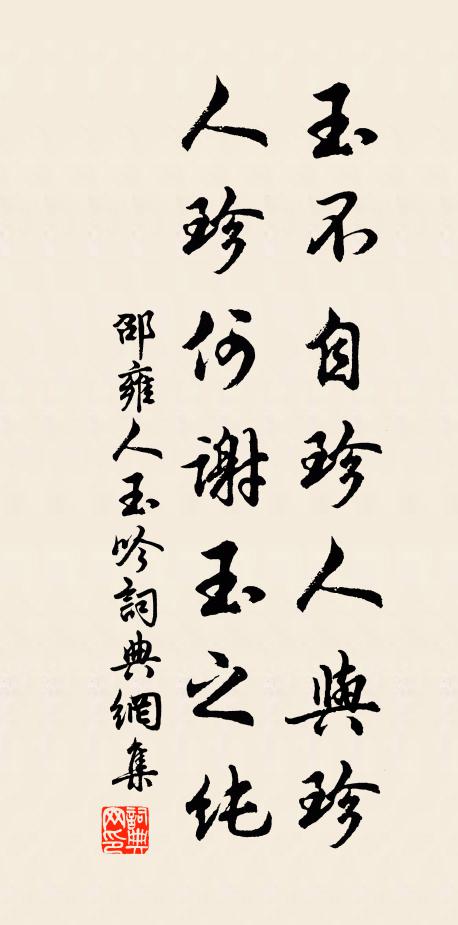 玉不自珍人與珍
人珍何謝玉之純
邵雍人玉吟詞典網集
詞典網印